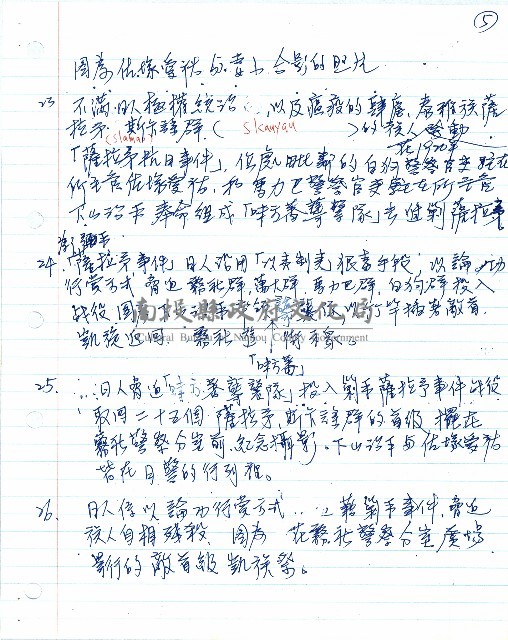 ⑤
圖為佐塚愛祐與妻小合影的照片
23 不滿日人極權統治，以及瘟疫的肆虐，泰雅族薩
拉矛(slamaw)、斯卡謠群(skauyau)的族人發動
在1920年
「薩拉矛抗日事件」，任處毗鄰的白狗警察官吏駐在
所主管佐塚愛祐，和馬力巴警察官吏駐在所主管
下山治平奉命組成「味方蕃襲擊隊」去進剿薩拉矛
24.「薩拉矛事件」日人沿用「以夷制夷」狠毒手段；以論功
行賞方式脅迫霧社群，萬大群，馬力巴群，白狗群投入
戰役 圖為
竹竿插著敵首，
凱旋返回霧社
「味方蕃」
南投縣政府文化局
Cultural Bureau of Nantou County Government
25. …日人脅迫「味方蕃襲擊隊」投入剿平薩拉矛事件戰役
取回二十五個薩拉矛，斯卡謠群的首級 擺在
霧社警察分室前，紀念攝影。下山治平與佐塚愛祐
皆在日警的行列裡。
26. 日人係以論功行賞方式…藉剿平事件，脅迫
族人自相殘殺，圖為 在霧社警察分室廣場
舉行的敵首級凱旋祭。